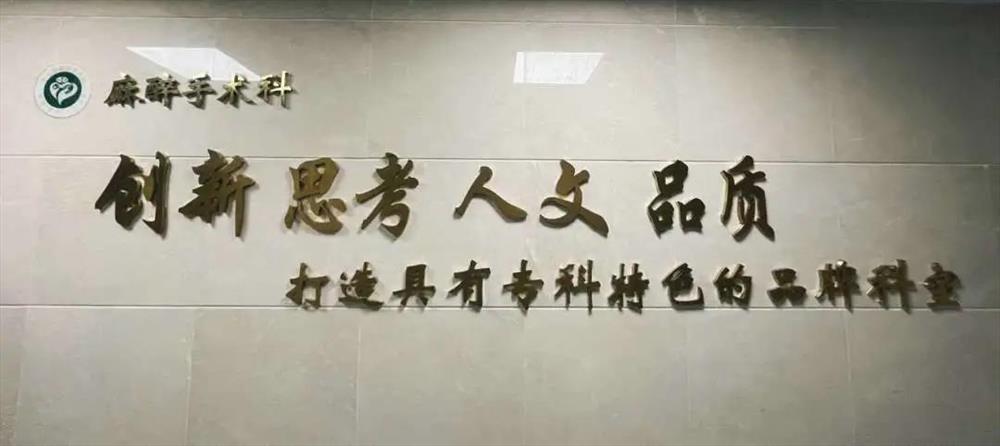 麻醉手术科
创新 思考 人文 品质
打造具有专科特色的品牌科室